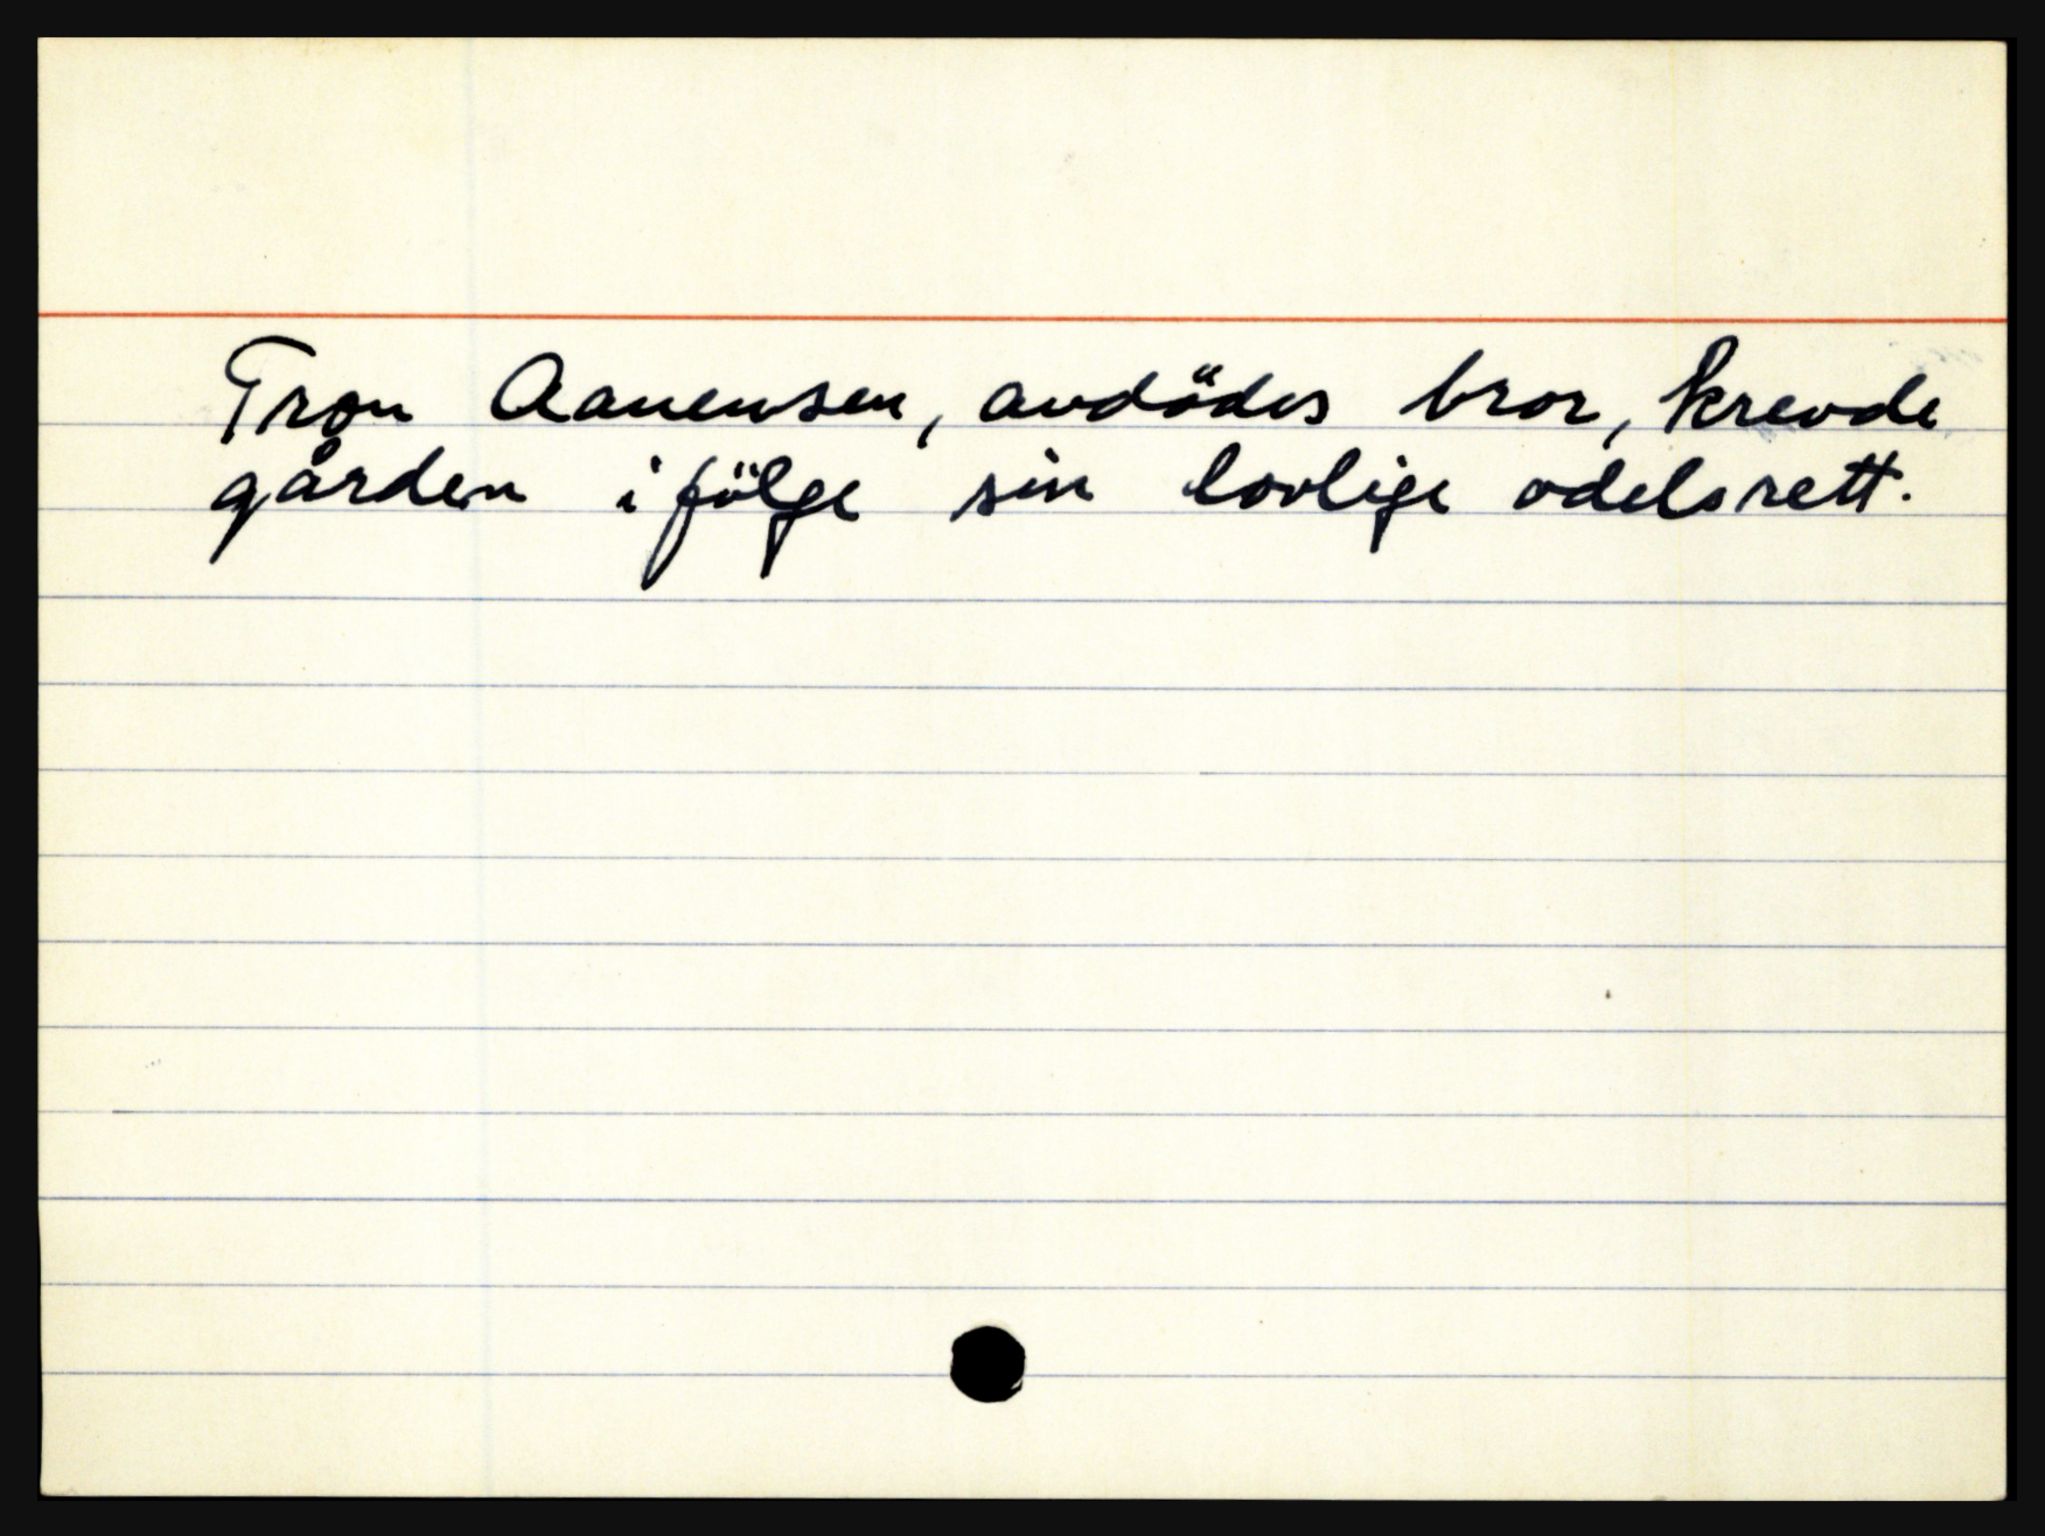 Tron Aanensen, avdödes bror, krevde
gården ifölge sin lovlige odelsrett.